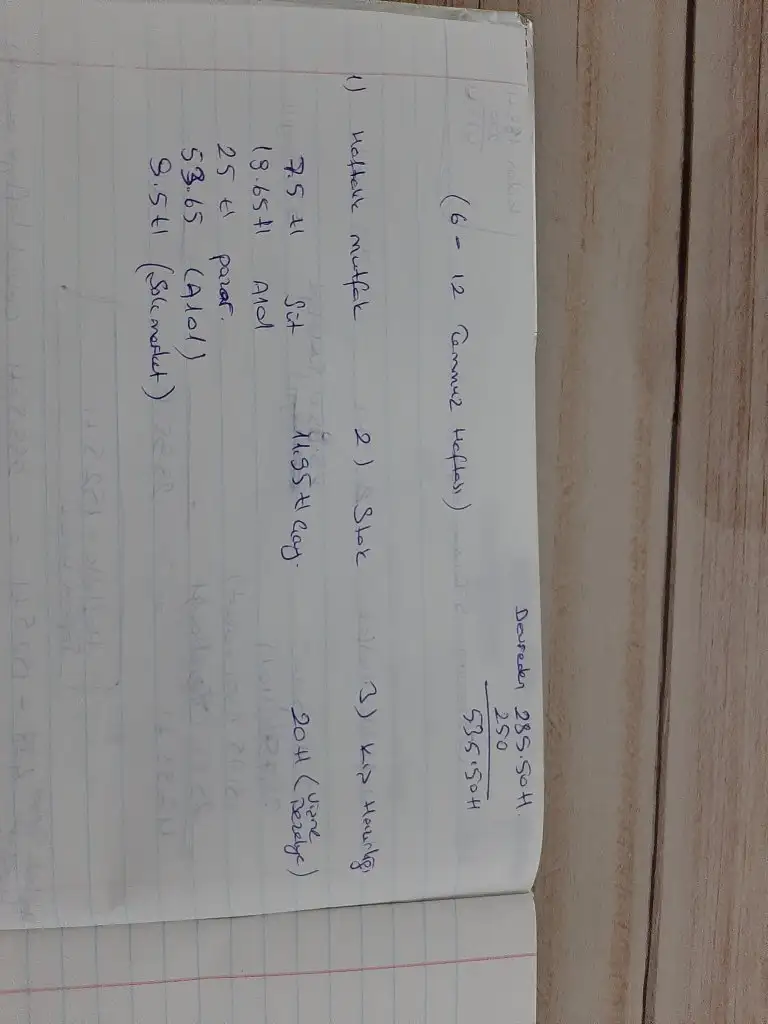 Devreden 285.50 tl.
250
535.50 tl
(6 - 12 Temmuz Haftası)
1) Haftalık mutfak 2) Stok 3) Kış Hazırlığı
7.5 tl Süt 11.95 tl Çay. 20 tl (Vişne
Reçeli)
19.65 tl A101
25 tl pazar.
53.65 (A101)
9.5 tl (Şok market)